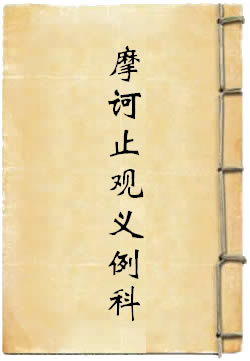 摩诃止观义例科